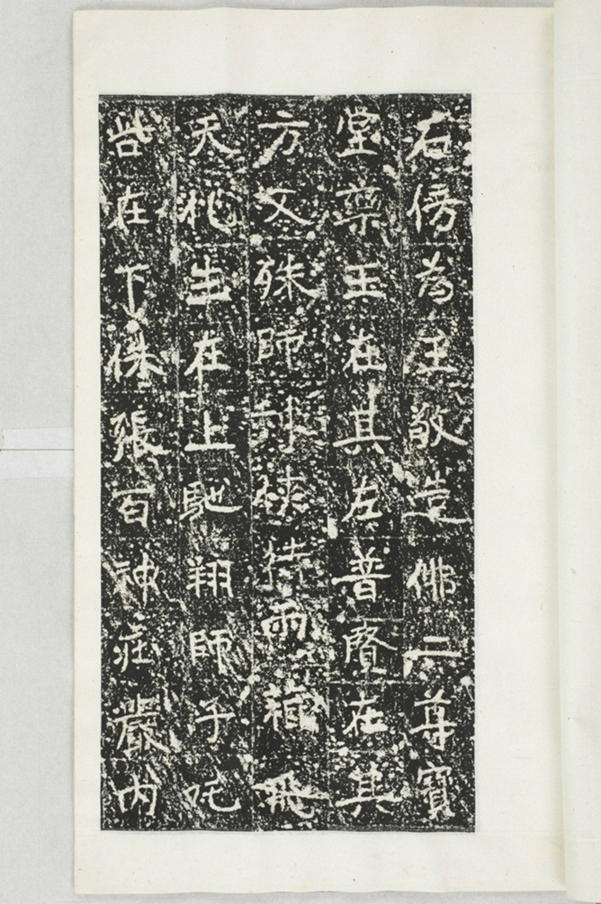 右傍為主敬造佛二尊寶
堂藥王在其左普賢在其
方文殊師利挾侍兩箱飛
天化生在上馳翔師子吒
呰在下侏張百神庄嚴内